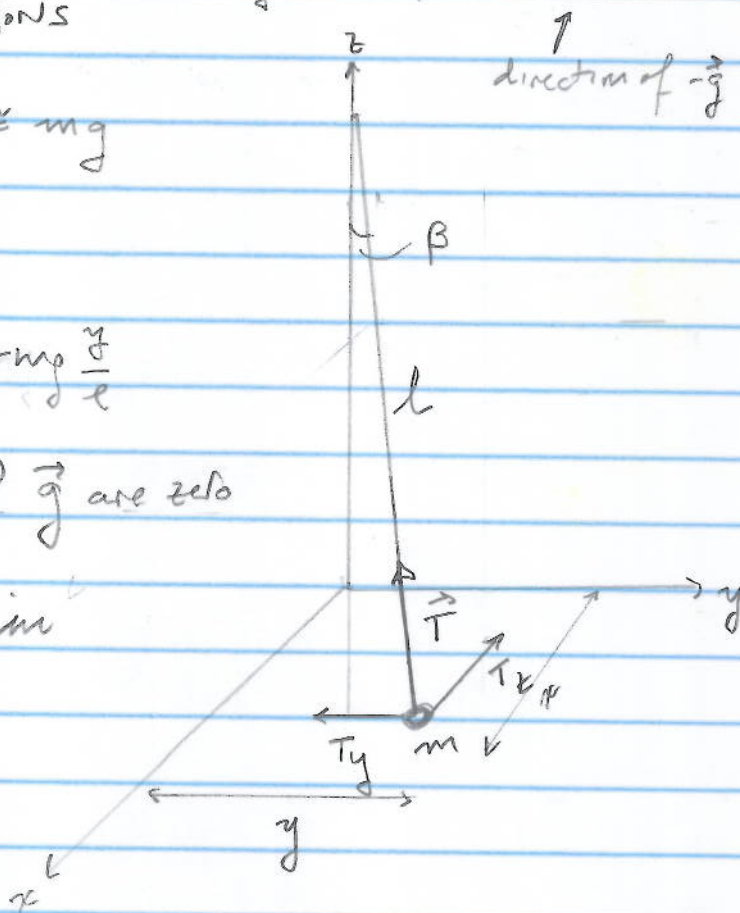 ONS
z
direction of -g⃗
mg
β
-mg y/l
l
g⃗ are zero
y
T⃗
in
T_x
T_y
m
y
x